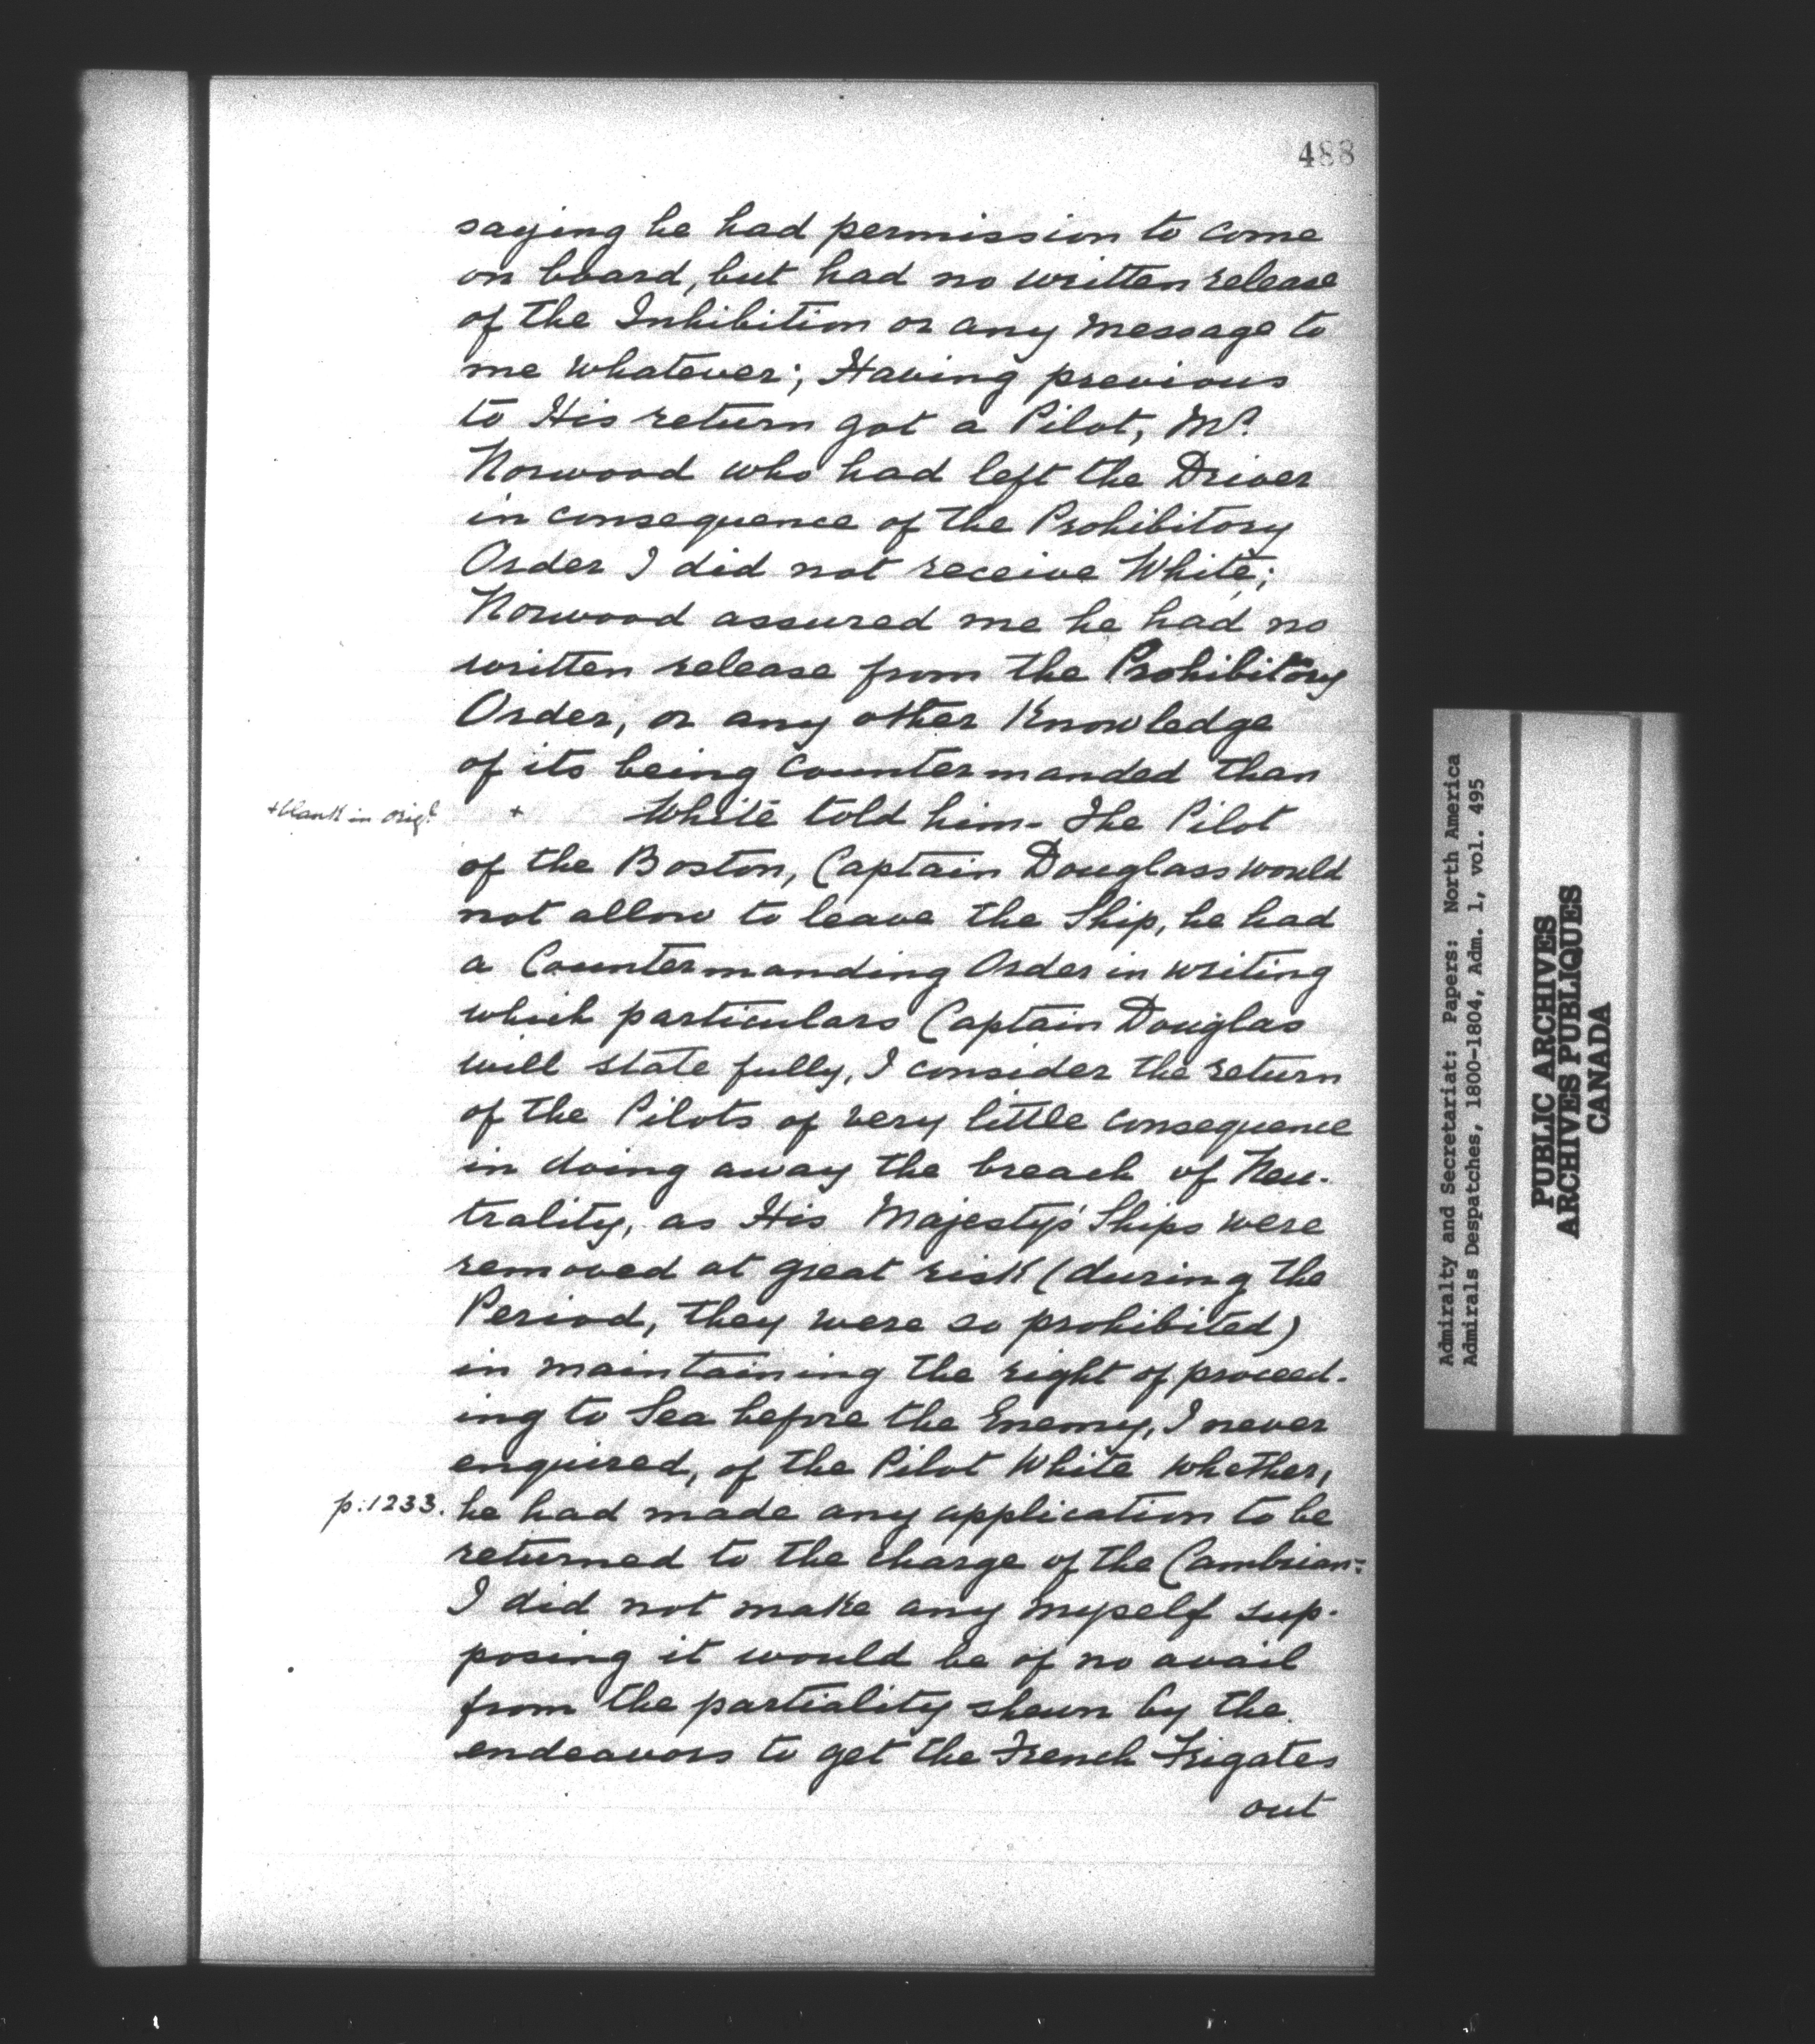 488
saying he had permission to come
on board, but had no written release
of the Inhibition or any message to
me whatever; Having previous
to His return got a Pilot, Mr.
Norwood who had left the Driver
in consequence of the Prohibitory
Order I did not receive White;
Norwood assured me he had no
written release from the Prohibitory
Order, or any other Knowledge
of its being Countermanded than
+blank in orig.l
+ White told him- The Pilot
of the Boston, Captain Douglass would
not allow to leave the Ship, he had
a Countermanding Order in writing
which particulars Captain Douglas
will state fully, I consider the return
of the Pilots of very little consequence
in doing away the breach of Neu-
trality, as His Majesty's Ships were
removed at great risk (during the
Period, they were so prohibited)
in maintaining the right of proceed-
ing to Sea before the Enemy, I never
enquired, of the Pilot White whether,
p:1233.
he had made any application to be
returned to the charge of the Cambrian-
I did not make any myself sup-
posing it would be of no avail
from the partiality shewn by the
endeavors to get the French Frigates
out
Admiralty and Secretariat: Papers: North America
Admirals Despatches, 1800-1804, Adm. 1, vol. 495
PUBLIC ARCHIVES
ARCHIVES PUBLIQUES
CANADA